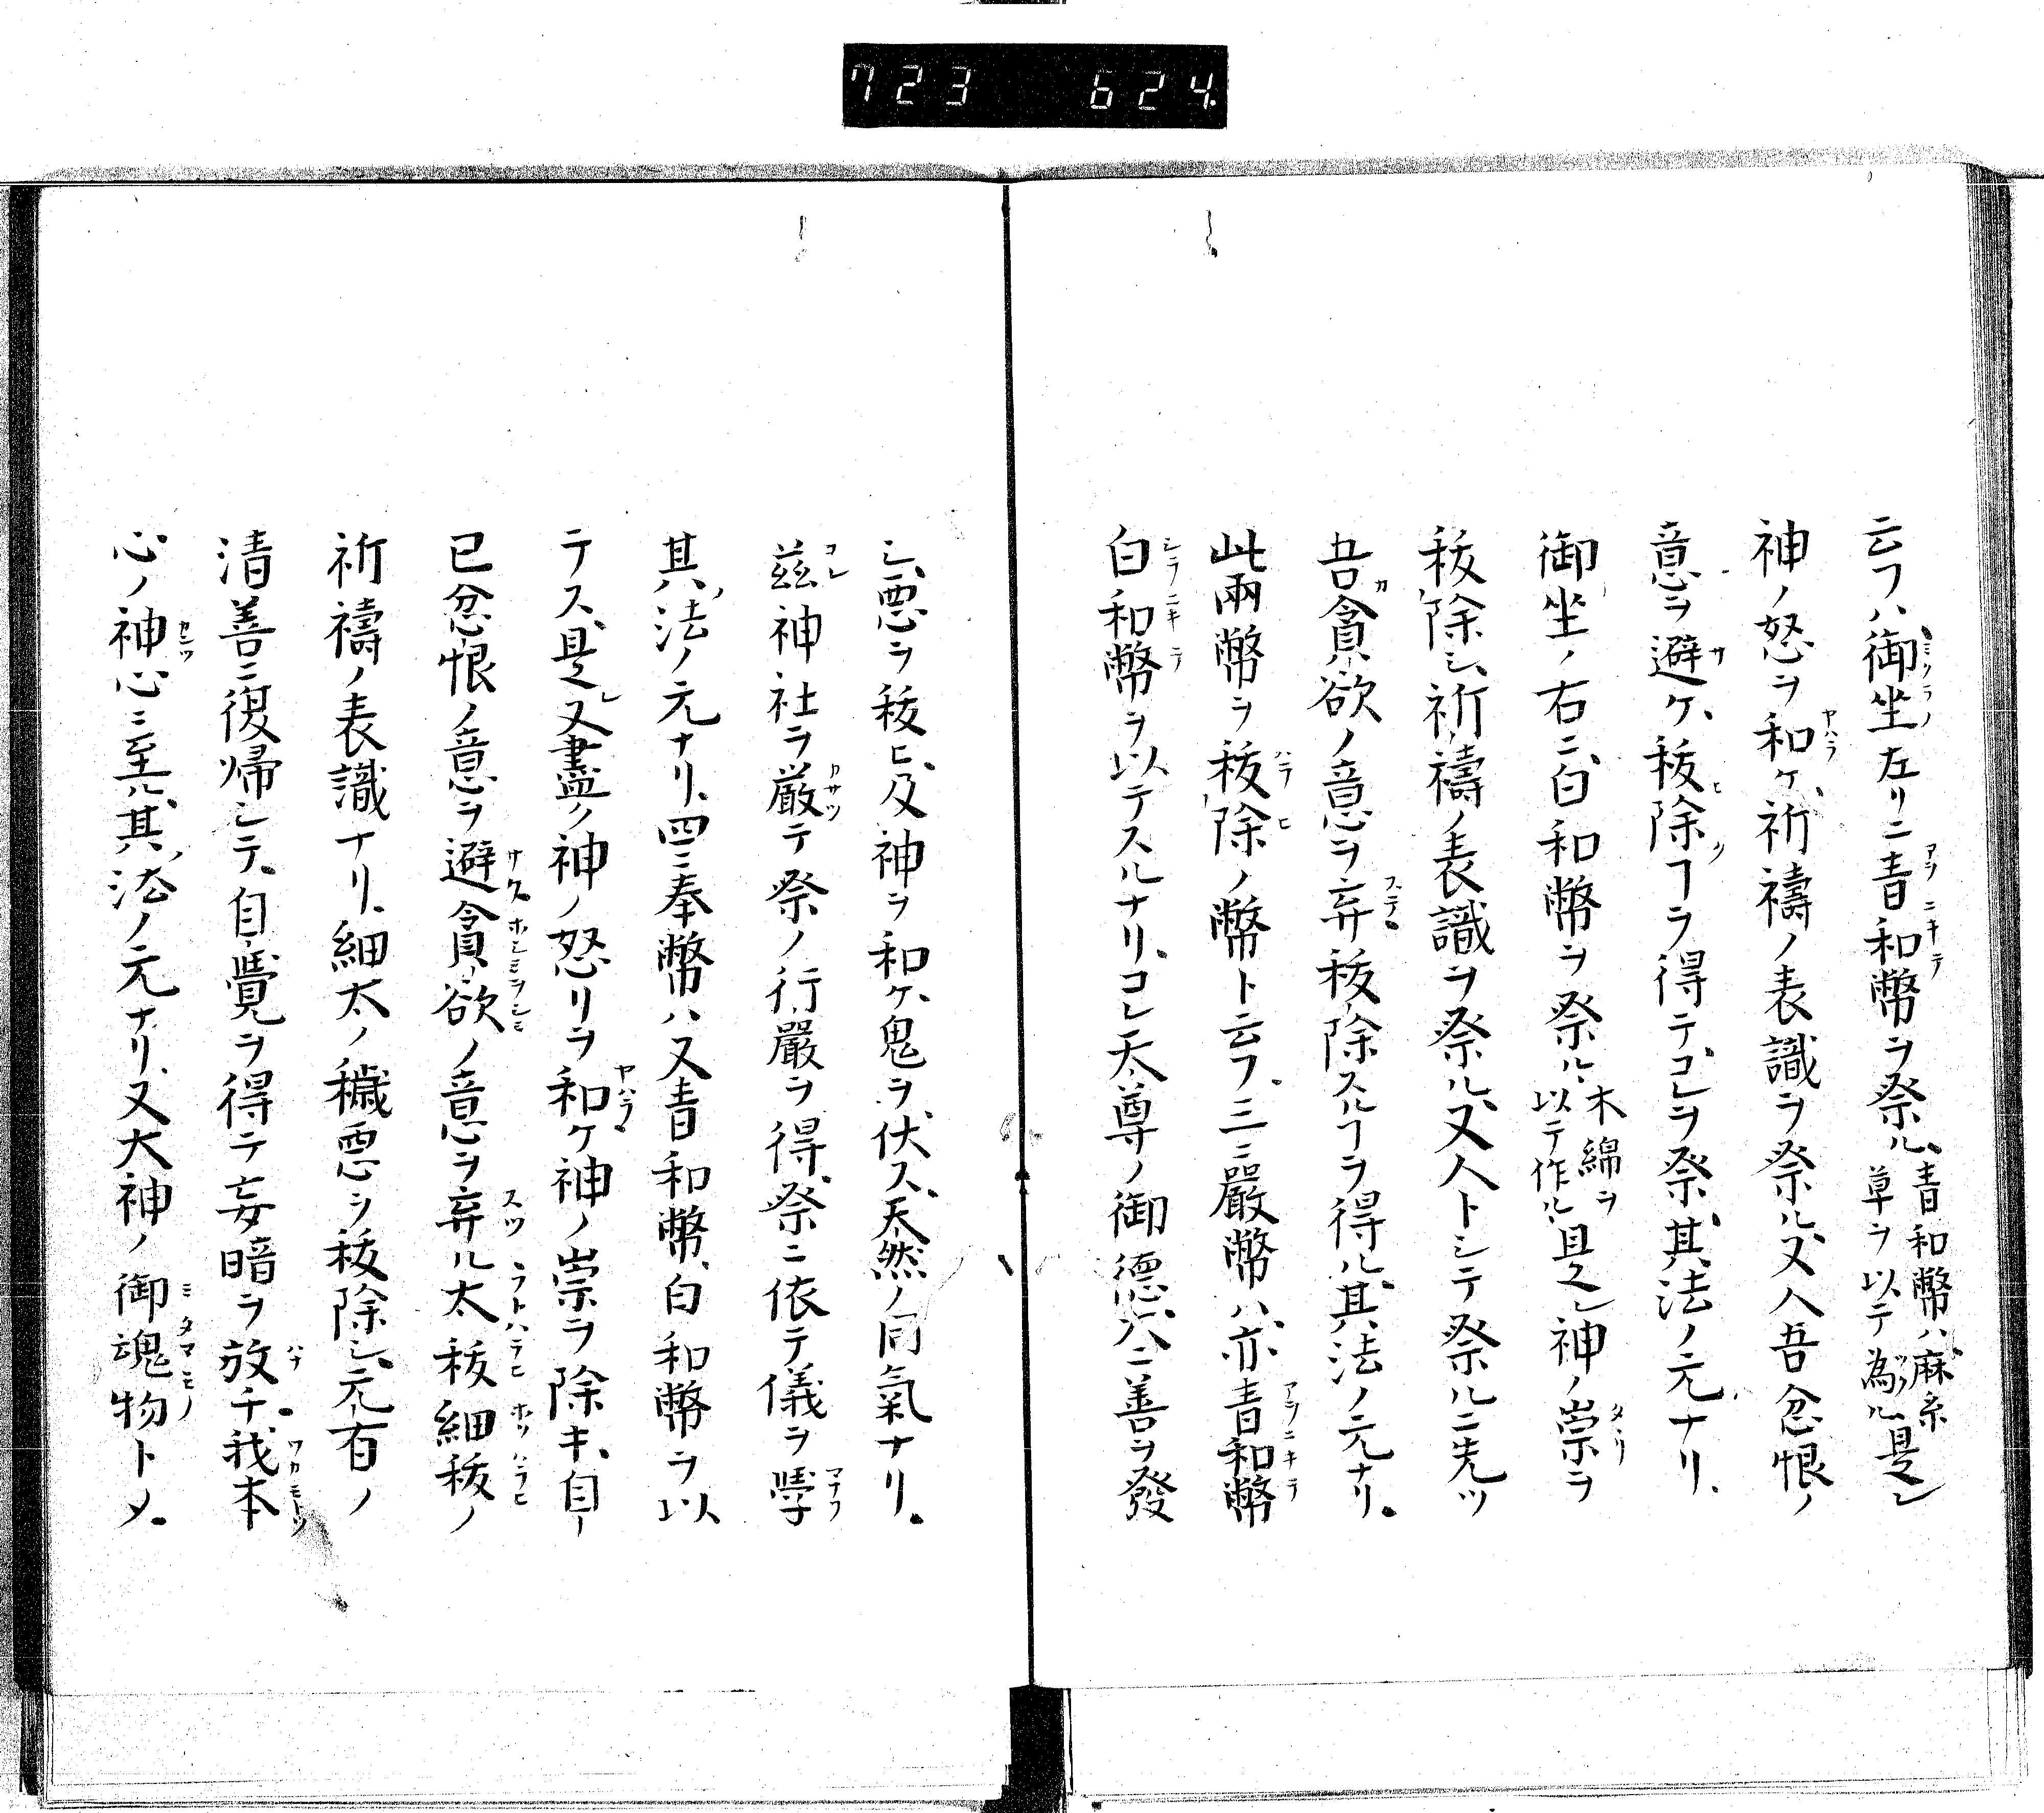 723 624
云フハ御坐左リニ青和幣ヲ祭ル、青和幣ハ麻糸草ヲ以テ為ル是レ
神ノ怒ヲ和ケ、祈禱ノ表識ヲ祭ル、又人吾忿恨ノ
意ヲ避ケ、秡除フヿヲ得テ、コレヲ祭、其法ノ元ナリ、
御坐ノ右ニ、白和幣ヲ祭ル、木綿ヲ以テ作ル、是レ神ノ崇ヲ
秡除シ、祈禱ノ表識ヲ祭ル、又人トシテ祭ルニ先ツ
吾貪欲ノ意ヲ弃秡除スルヿヲ得ル、其法ノ元ナリ。
此兩幣ヲ秡除ノ幣ト云フ。三ニ嚴幣ハ、亦青和幣
白和幣ヲ以テスルナリ、コレ天尊ノ御德、人ニ善ヲ發
シ、悪ヲ秡ヒ、及神ヲ和ケ、鬼ヲ伏ス、天然ノ同氣ナリ。
茲神社ヲ厳テ祭ノ行嚴ヲ得、祭ニ依テ儀ヲ學
其ノ法ノ元ナリ、四ニ奉幣ハ又青和幣、白和幣ヲ以
テス、是レ又盡ク神ノ怒リヲ和ケ神ノ崇ヲ除キ、自
已忿恨ノ意ヲ避貪欲ノ意ヲ弃ル太秡細秡ノ
祈禱ノ表識ナリ、細太ノ穢悪ヲ秡除シ、元有ノ
清善ニ復帰シテ、自覺ヲ得テ妄暗ヲ放チ、我本
心ノ神心ニ至ル、其ノ法ノ元ナリ、又大神ノ御魂物トメ。